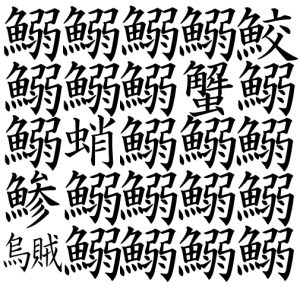 鰯鰯鰯鰯鮫
鰯鰯鰯蟹鰯
鰯蛸鰯鰯鰯
鯵鰯鰯鰯鰯
烏賊鰯鰯鰯鰯